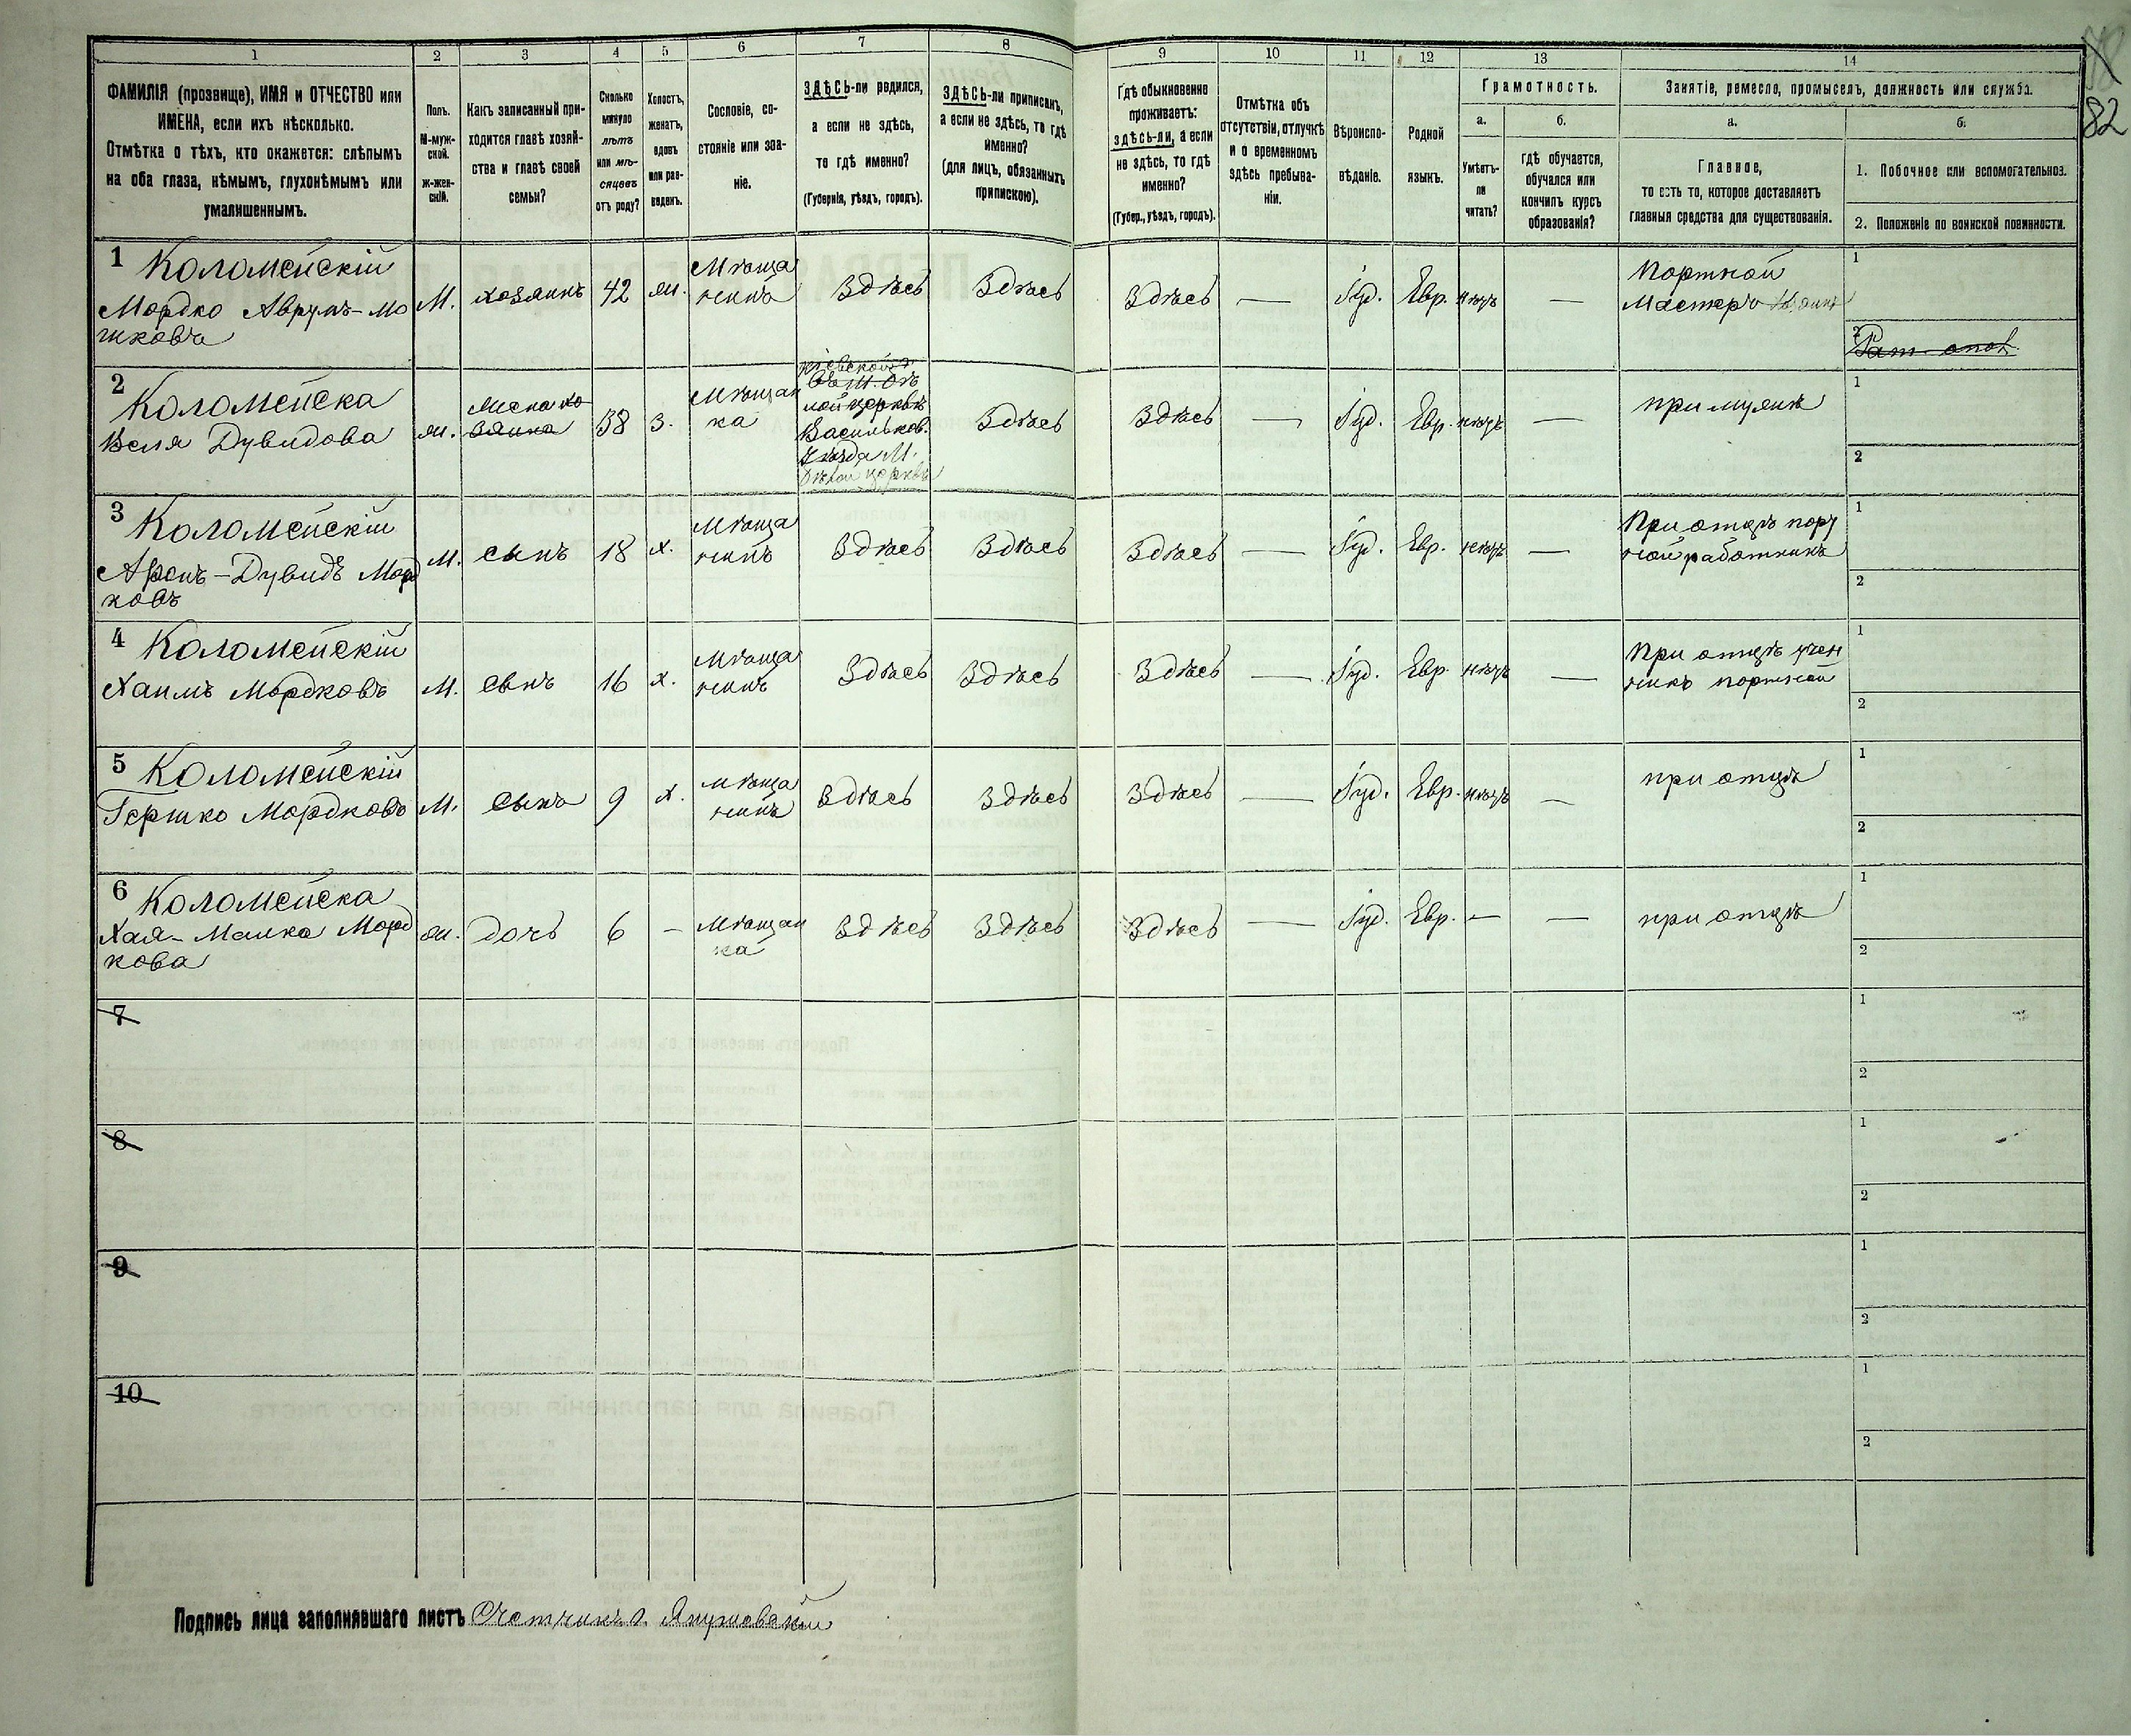 1 2 3 4 5 6 7 8 9 10 11 12 13 14
82
ФАМИЛІЯ (прозвище), ИМЯ и ОТЧЕСТВО или
ИМЕНА, если ихъ нѣсколько.
Отмѣтка о тѣхъ, кто окажется: слѣпымъ
на оба глаза, нѣмымъ, глухонѣмымъ или
умалишеннымъ.
Полъ.
М-муж-
ской.
ж-жен-
скій.
Какъ записанный при-
ходится главѣ хозяй-
ства и главѣ своей
семьи?
Сколько
минуло
лѣтъ
или мѣ-
сяцевъ
отъ роду?
Холостъ,
женатъ,
вдовъ
или раз-
веденъ.
Сословіе, со-
стояніе или зва-
ніе.
ЗДѢСЬ-ли родился,
а если не здѣсь,
то гдѣ именно?
(Губернія, уѣздъ, городъ).
ЗДѢСЬ-ли приписанъ,
а если не здѣсь, то гдѣ
именно?
(для лицъ, обязанныхъ
припискою).
Гдѣ обыкновенно
проживаетъ:
здѣсь-ли, а если
не здѣсь, то гдѣ
именно?
(Губер., уѣздъ, городъ).
Отмѣтка объ
отсутствіи, отлучкѣ
и о временномъ
здѣсь пребыва-
ніи.
Вѣроиспо-
вѣданіе.
Родной
языкъ.
Грамотность.
а.
Умѣетъ-
ли
читать?
б.
гдѣ обучается,
обучался или
кончилъ курсъ
образованія?
Занятіе, ремесло, промыселъ, должность или служба.
а.
Главное,
то есть то, которое доставляетъ
главныя средства для существованія.
б.
1. Побочное или вспомогательное.
2. Положеніе по воинской повинности.
1 Коломейскій
Мордко Аврумъ-Мо
шковъ
М.
хозяинъ
42
ж.
Мѣща
нинъ
Здѣсь
Здѣсь
Здѣсь
—
Іуд.
Евр.
нѣтъ
—
Портной
Мастеръ
1
2
2 Коломейска
Веля Дувидова
ж.
Жена хо
зяина
38
з.
Мѣщан
ка
Кіевской
Васильков.
Уѣзда М.
Бѣлой церквѣ
Здѣсь
Здѣсь
—
Іуд.
Евр.
нѣтъ
—
при мужѣ
1
2
3 Коломейскій
Аронъ-Дувидъ Морд
ковъ
М.
сынъ
18
х.
Мѣща
нинъ
Здѣсь
Здѣсь
Здѣсь
—
Іуд.
Евр.
нѣтъ
—
При отцѣ порт
ной работникъ
1
2
4 Коломейскій
Хаимъ Мордковъ
М.
сынъ
16
х.
Мѣща
нинъ
Здѣсь
Здѣсь
Здѣсь
—
Іуд.
Евр.
нѣтъ
—
При отцѣ уче
никъ портной
1
2
5 Коломейскій
Гершко Мордковъ
М.
сынъ
9
х.
Мѣща
нинъ
Здѣсь
Здѣсь
Здѣсь
—
Іуд.
Евр.
нѣтъ
—
при отцѣ
1
2
6 Коломейска
Хая-Малка Морд
кова
ж.
дочь
6
—
Мѣщан
ка
Здѣсь
Здѣсь
Здѣсь
—
Іуд.
Евр.
—
—
при отцѣ
1
2
7
1
2
8
1
2
9
1
2
10
1
2
Подпись лица заполнявшаго листъ Счетчикъ